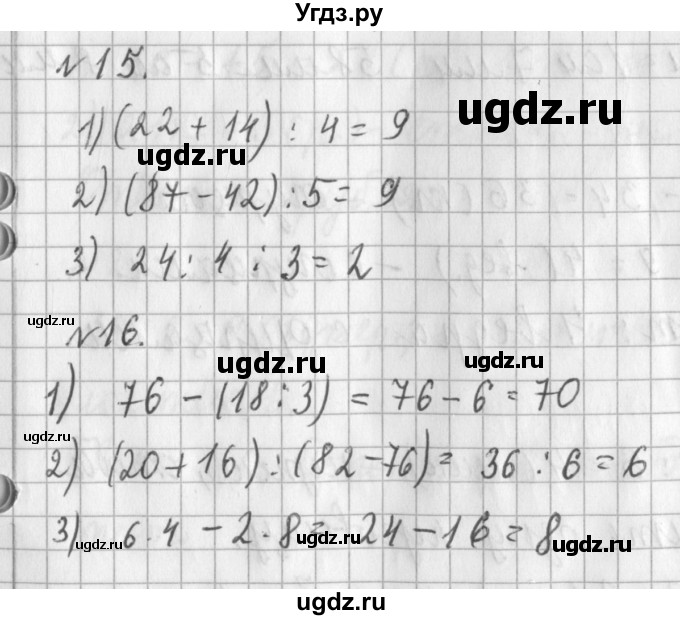 Угдз.ру
№15.
1) (22 + 14) : 4 = 9
ugdz.ru
ugdz.ru
2) (87 - 42) : 5 = 9
3) 24 : 4 : 3 = 2
ugdz.ru
№16.
ugdz.ru
ugdz.ru
1) 76 - (18 : 3) = 76 - 6 = 70
ugdz.ru
2) (20 + 16) : (82 - 76) = 36 : 6 = 6
3) 6 · 4 - 2 · 8 = 24 - 16 = 8
ugdz.ru
ugdz.ru
ugdz.ru
ugdz.ru